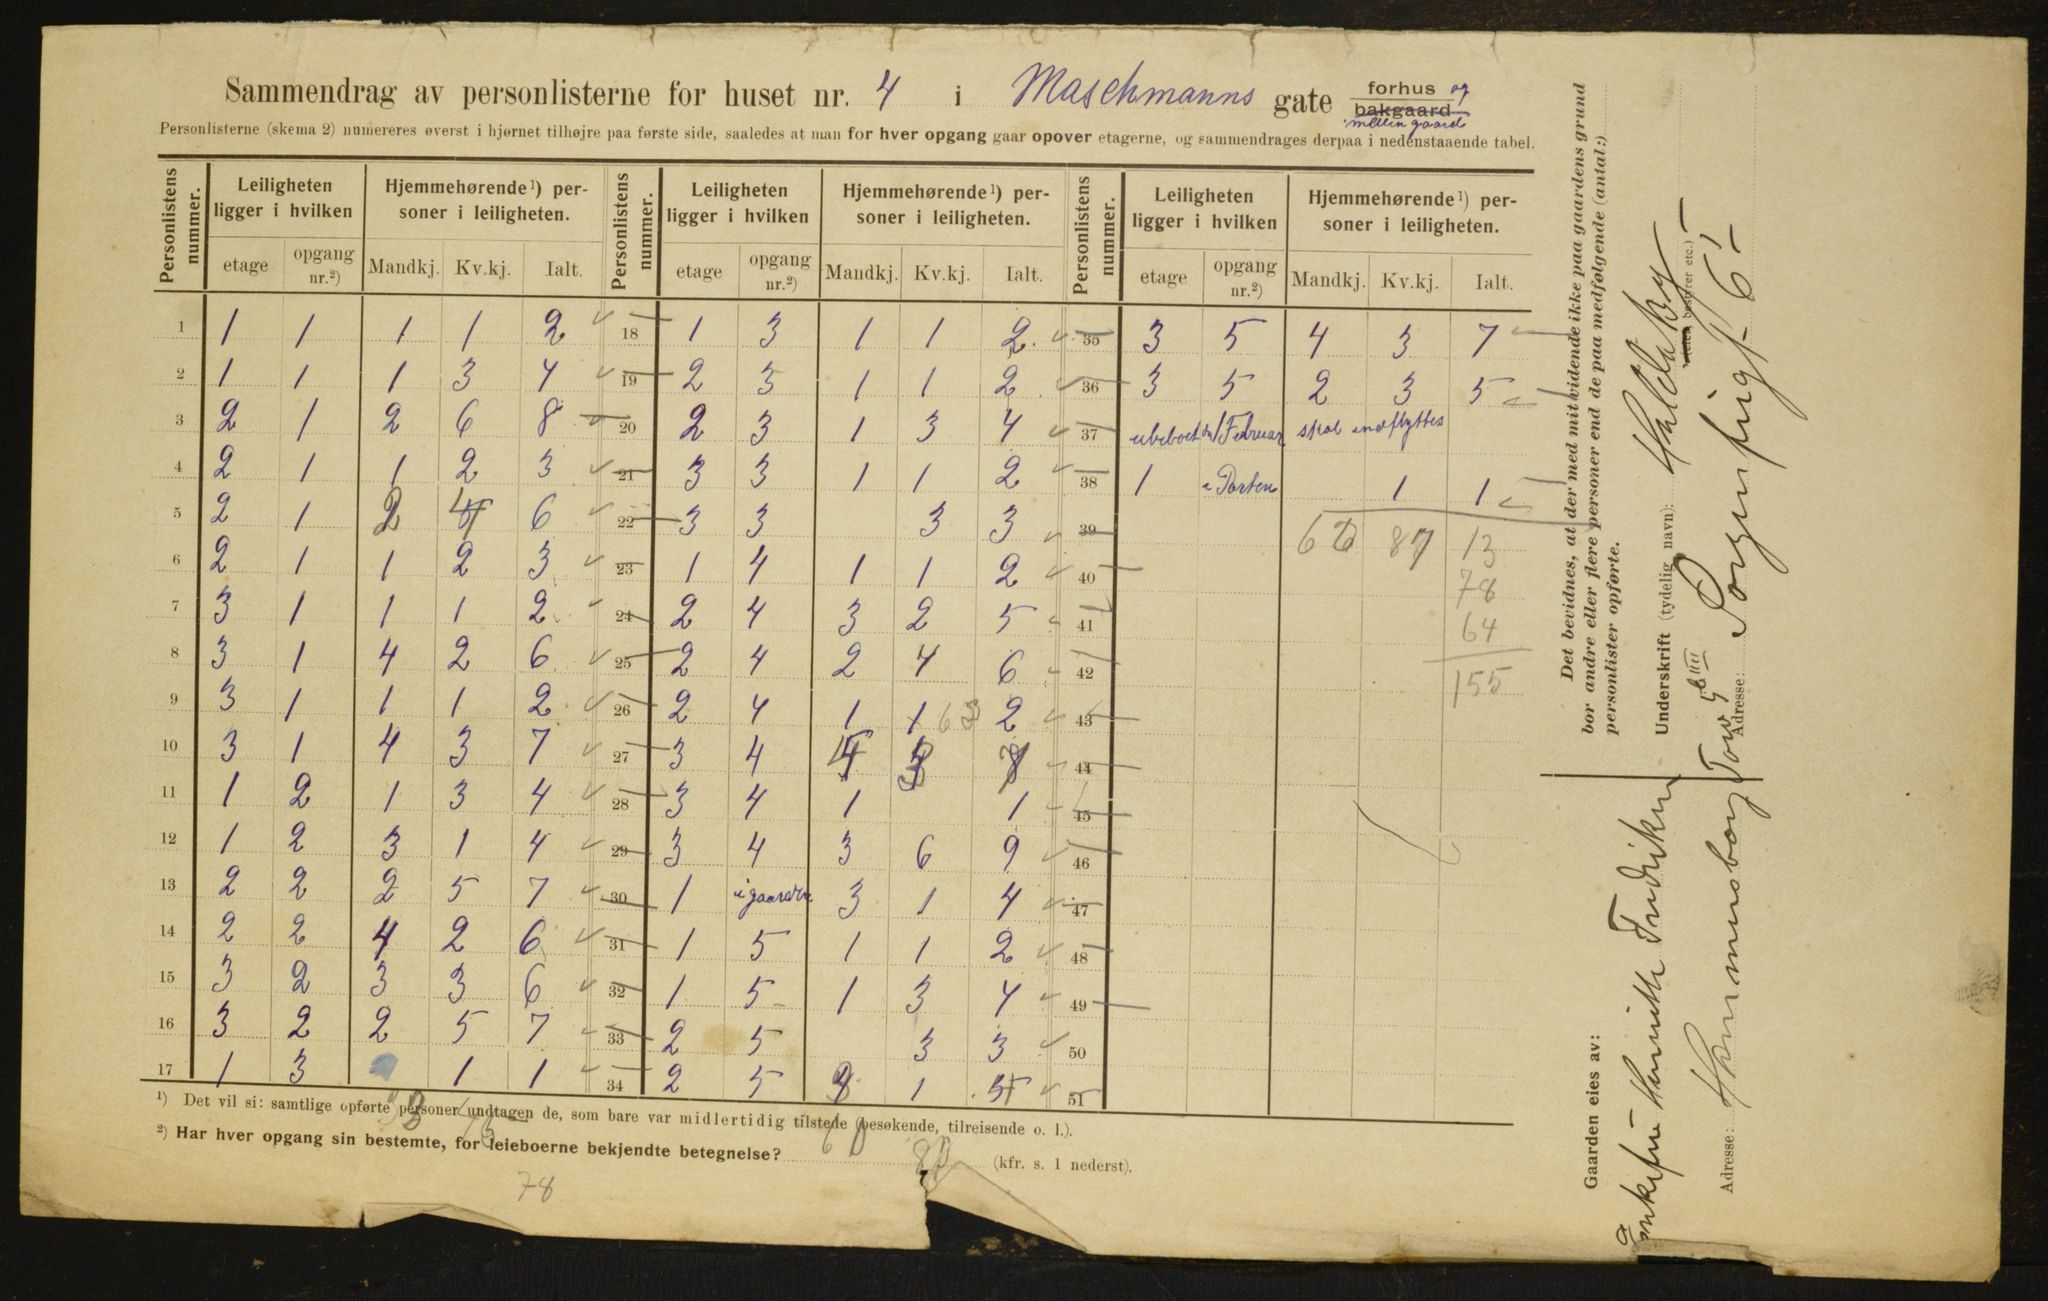 Sammendrag av personlisterne for huset nr. 4 i Maschmanns gate forhus og
bakgaard
mellingaard
Personlisterne (skema 2) numereres øverst i hjørnet tilhøjre paa første side, saaledes at man for hver opgang gaar opover etagerne, og sammendrages derpaa i nedenstaaende tabel.
Personlistens nummer. Leiligheten ligger i hvilken Hjemmehørende ¹) personer i leiligheten. Personlistens nummer. Leiligheten ligger i hvilken Hjemmehørende ¹) personer i leiligheten. Personlistens nummer. Leiligheten ligger i hvilken Hjemmehørende ¹) personer i leiligheten.
etage opgang nr.²) Mandkj. Kv.kj. Ialt. etage opgang nr.²) Mandkj. Kv.kj. Ialt. etage opgang nr.²) Mandkj. Kv.kj. Ialt.
1 1 1 1 1 2 18 1 3 1 1 2 35 3 5 4 3 7
2 1 1 1 3 4 19 2 3 1 1 2 36 3 5 2 3 5
3 2 1 2 6 8 20 2 3 1 3 4 37 ubeboet 1/Februar skal indflyttes
4 2 1 1 2 3 21 3 3 1 1 2 38 1 i Porten 1 1
5 2 1 2 4 6 22 3 3 3 3 39 87 13
6 2 1 1 2 3 23 1 4 1 1 2 40 78
7 3 1 1 1 2 24 2 4 3 2 5 41 64
8 3 1 4 2 6 25 2 4 2 4 6 42 155
9 3 1 1 1 2 26 2 4 1 1 2 43
10 3 1 4 3 7 27 3 4 4 3 7 44
11 1 2 1 3 4 28 3 4 1 1 45
12 1 2 3 1 4 29 3 4 3 6 9 46
13 2 2 2 5 7 30 1 i gaarden 3 1 4 47
14 2 2 4 2 6 31 1 5 1 1 2 48
15 3 2 3 3 6 32 1 5 1 3 4 49
16 3 2 2 5 7 33 2 5 3 3 50
17 1 3 1 1 34 2 5 1 51
¹) Det vil si: samtlige opførte personer undtagen de, som bare var midlertidig tilstede (besøkende, tilreisende o. l.).
²) Har hver opgang sin bestemte, for leieboerne bekjendte betegnelse? (kfr. s. 1 nederst).
78
Det bevidnes, at der med mit vidende ikke paa gaardens grund
bor andre eller flere personer end de paa medfølgende (antal:)
personlister opførte.
Underskrift (tydelig navn):
(eier, bestyrer etc.)
Adresse:
Gaarden eies av:
Enkefru
Adresse: